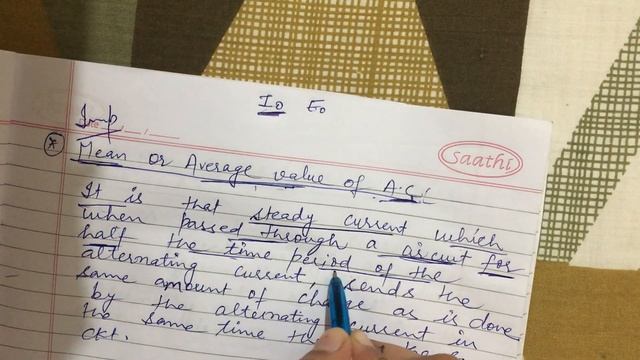 I₀ E₀
Imp
saathi
* Mean or Average value of A.C:
It is that steady current which
when passed through a circuit for
half the time period of the
alternating current, sends the
same amount of charge as is done
by the alternating current in
the same time the
ckt.